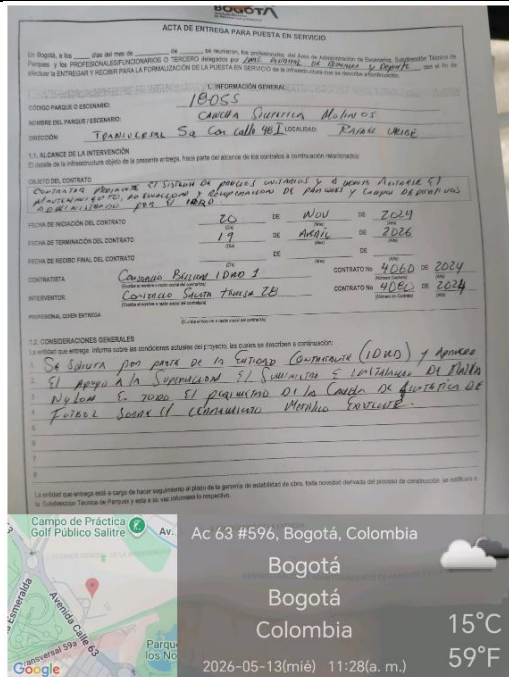 BOGOTÁ
ACTA DE ENTREGA PARA PUESTA EN SERVICIO
En Bogotá, a los ____ días del mes de ____ de ____ se reunieron, los profesionales, del Área de Administración de Escenarios, Subdirección Técnica de
Parques y los PROFESIONALES/FUNCIONARIOS O TERCERO delegados por y Deporte con el fin de
efectuar la ENTREGAR Y RECIBIR PARA LA FORMALIZACIÓN DE LA PUESTA EN SERVICIO de la infraestructura que se describe a continuación.
1. INFORMACIÓN GENERAL
CÓDIGO PARQUE O ESCENARIO: 18055
NOMBRE DEL PARQUE / ESCENARIO: CANCHA SINTETICA MOLINOS
DIRECCIÓN: TRANSVERSAL 5a Con calle 48 I LOCALIDAD: RAFAEL URIBE
1.1. ALCANCE DE LA INTERVENCIÓN
El detalle de la infraestructura objeto de la presente entrega, hace parte del alcance de los contratos a continuación relacionados:
OBJETO DEL CONTRATO
CONTRATAR MEDIANTE El SISTEMA DE PRECIOS UNITARIOS y A MONTO AGOTABLE El
MANTENIMIENTO, ADECUACION y RECUPERACION DE PARQUES y CAMPOS DEPORTIVOS
ADMINISTRADOS POR El IDRD
FECHA DE INICIACIÓN DEL CONTRATO 20 DE NOV DE 2024
(Día) (Mes) (Año)
FECHA DE TERMINACIÓN DEL CONTRATO 19 DE ABRIL DE 2026
(Día) (Mes) (Año)
FECHA DE RECIBO FINAL DEL CONTRATO DE DE
(Día) (Mes) (Año)
CONTRATISTA CONSORCIO IDRD 1 CONTRATO No 4060 DE 2024
INTERVENTOR CONSORCIO SANTA TERESA 28 CONTRATO No 4080 DE 2024
PROFESIONAL QUIEN ENTREGA
1.2. CONSIDERACIONES GENERALES
La entidad que entrega informa sobre las condiciones actuales del proyecto, las cuales se describen a continuación:
1 SE SOLICITA POR PARTE DE LA ENTIDAD CONTRATANTE (IDRD) y
2 El APOYO A LA SUPERVISION El SUMINISTRO E INSTALACION DE MALLA
3 NYLON EN TODO El PERIMETRO DE LA CANCHA DE SINTETICA DE
4 FUTBOL SOBRE El CERRAMIENTO METALICO EXISTENTE.
5
6
7
8
La entidad que entrega está a cargo de hacer seguimiento al plazo de la garantía de estabilidad de obra, toda novedad derivada del proceso de construcción se notificara a
la Subdirección Técnica de Parques y esta a su vez informara lo respectivo.
Campo de Práctica
Golf Público Salitre
Av.
a Esmeralda
Avenida Calle 63
ansversal 59a
Parque
los No
Google
Ac 63 #596, Bogotá, Colombia
Bogotá
Bogotá
Colombia
2026-05-13(mié) 11:28(a. m.)
15°C
59°F